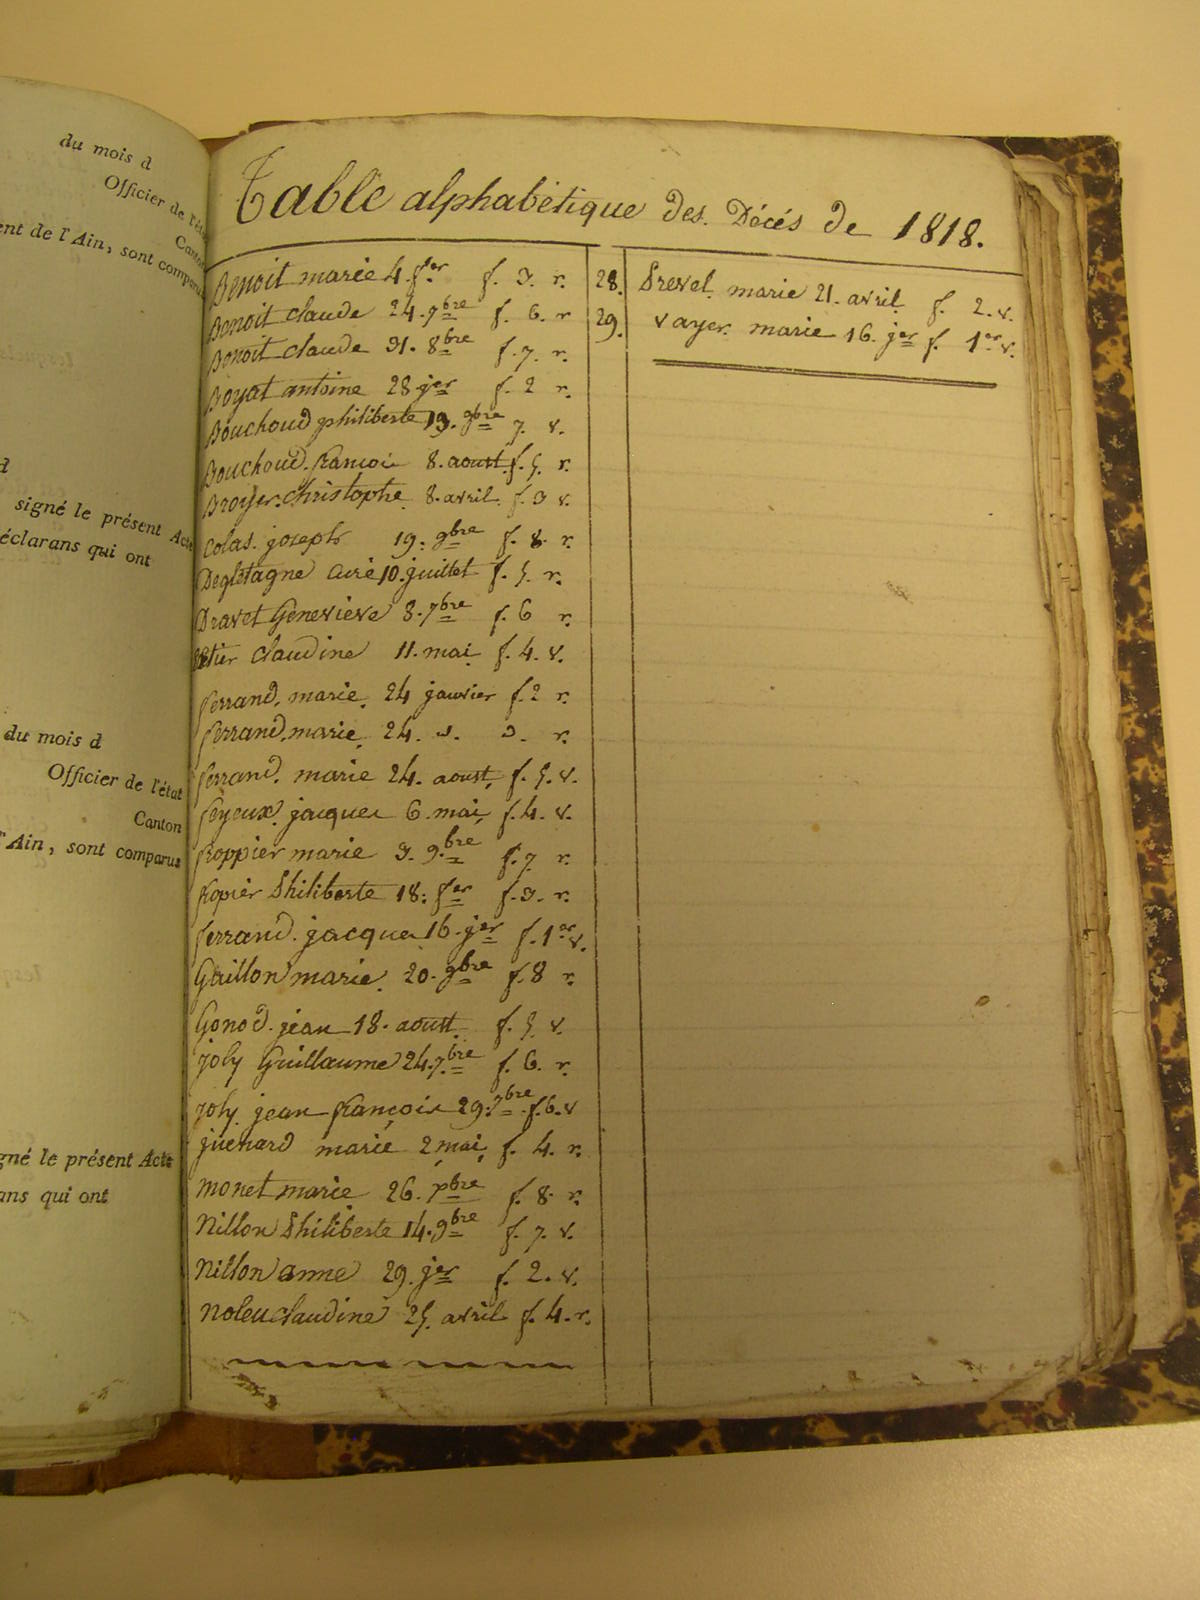 du mois d
Officier de l'éta
Canton
ent de l'Ain, sont comparus
d
signé le présent Acte
éclarans qui ont
du mois d
Officier de l'état
Canton
l'Ain, sont comparus
gné le présent Acte
ans qui ont
Table alphabétique des Décés de 1818.
Benoit marie 4. fer f. 3. r.
Benoit claude 24. 7bre f. 6. r
Benoit claude 31. 8bre f. 7. r.
Boyat antoine 28 jer f. 2 r.
Bouchoud philiberte 19. 9bre 7. v.
Bouchoud. francois 8. aoust. f. 5. r.
Broyer. christophe. 8. avril. f. 3 v.
Colas. joseph 19. 9bre f. 8. r.
Degletagne curé 10. juillet f. 5. r.
Dravet Geneviève 8. 7bre f. 6 r.
claudine 11. mai f. 4. v.
ferrand. marie. 24 janvier f. 2 r.
ferrand. marie. 24. r.
ferrand. marie 24. aoust, f. 5. v.
feyeux. jacques 6. mai, f. 4. v.
froppier marie 3. 9.bre f. 7. r.
fropier Philiberte 18. fer f. 3. r.
ferrand. jacques 16. jer f. 1er v.
Guillon marie. 20. 9bre f. 8 r.
Gonod. jean 18. aoust f. 5. v.
joly Guillaume 24. 7bre f. 6. r.
joly. jean françois 29. 7bre f. 6. v
juenard marie 2 mai, f. 4. r.
monet marie 26. bre f. 8. r.
Nillon Philiberte 14. 9bre f. 7. v.
Nillon anne 29. jer f. 2. v.
Noleu claudine 25. avril f. 4. r.
28. Prevel. marie 21. avril f. 2. v.
29. vayer. marie 16. jer f. 1er v.